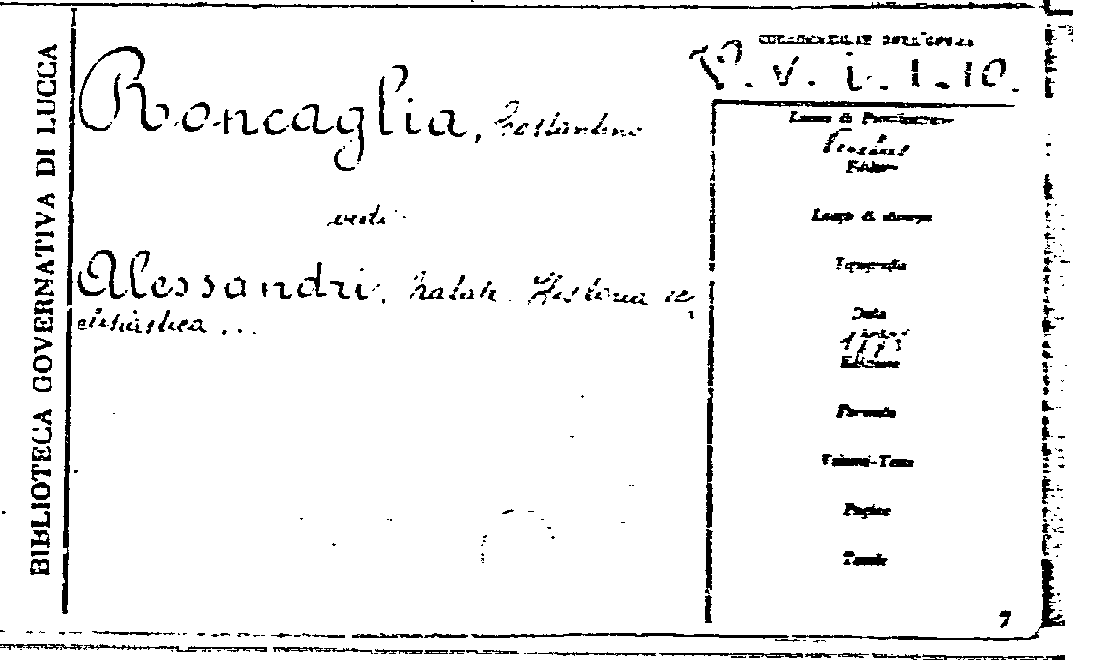 BIBLIOTECA GOVERNATIVA DI LUCCA
Roncaglia, Costantino
vedi
Alessandri, Natale. Historia ec
clesiastica ...
P. V. i. 1. 10.
Luogo di Pubblicazione
Editore
Luogo di stampa
Tipografia
Data
Edizione
Formato
Volumi-Tomi
Pagine
Tavole
7